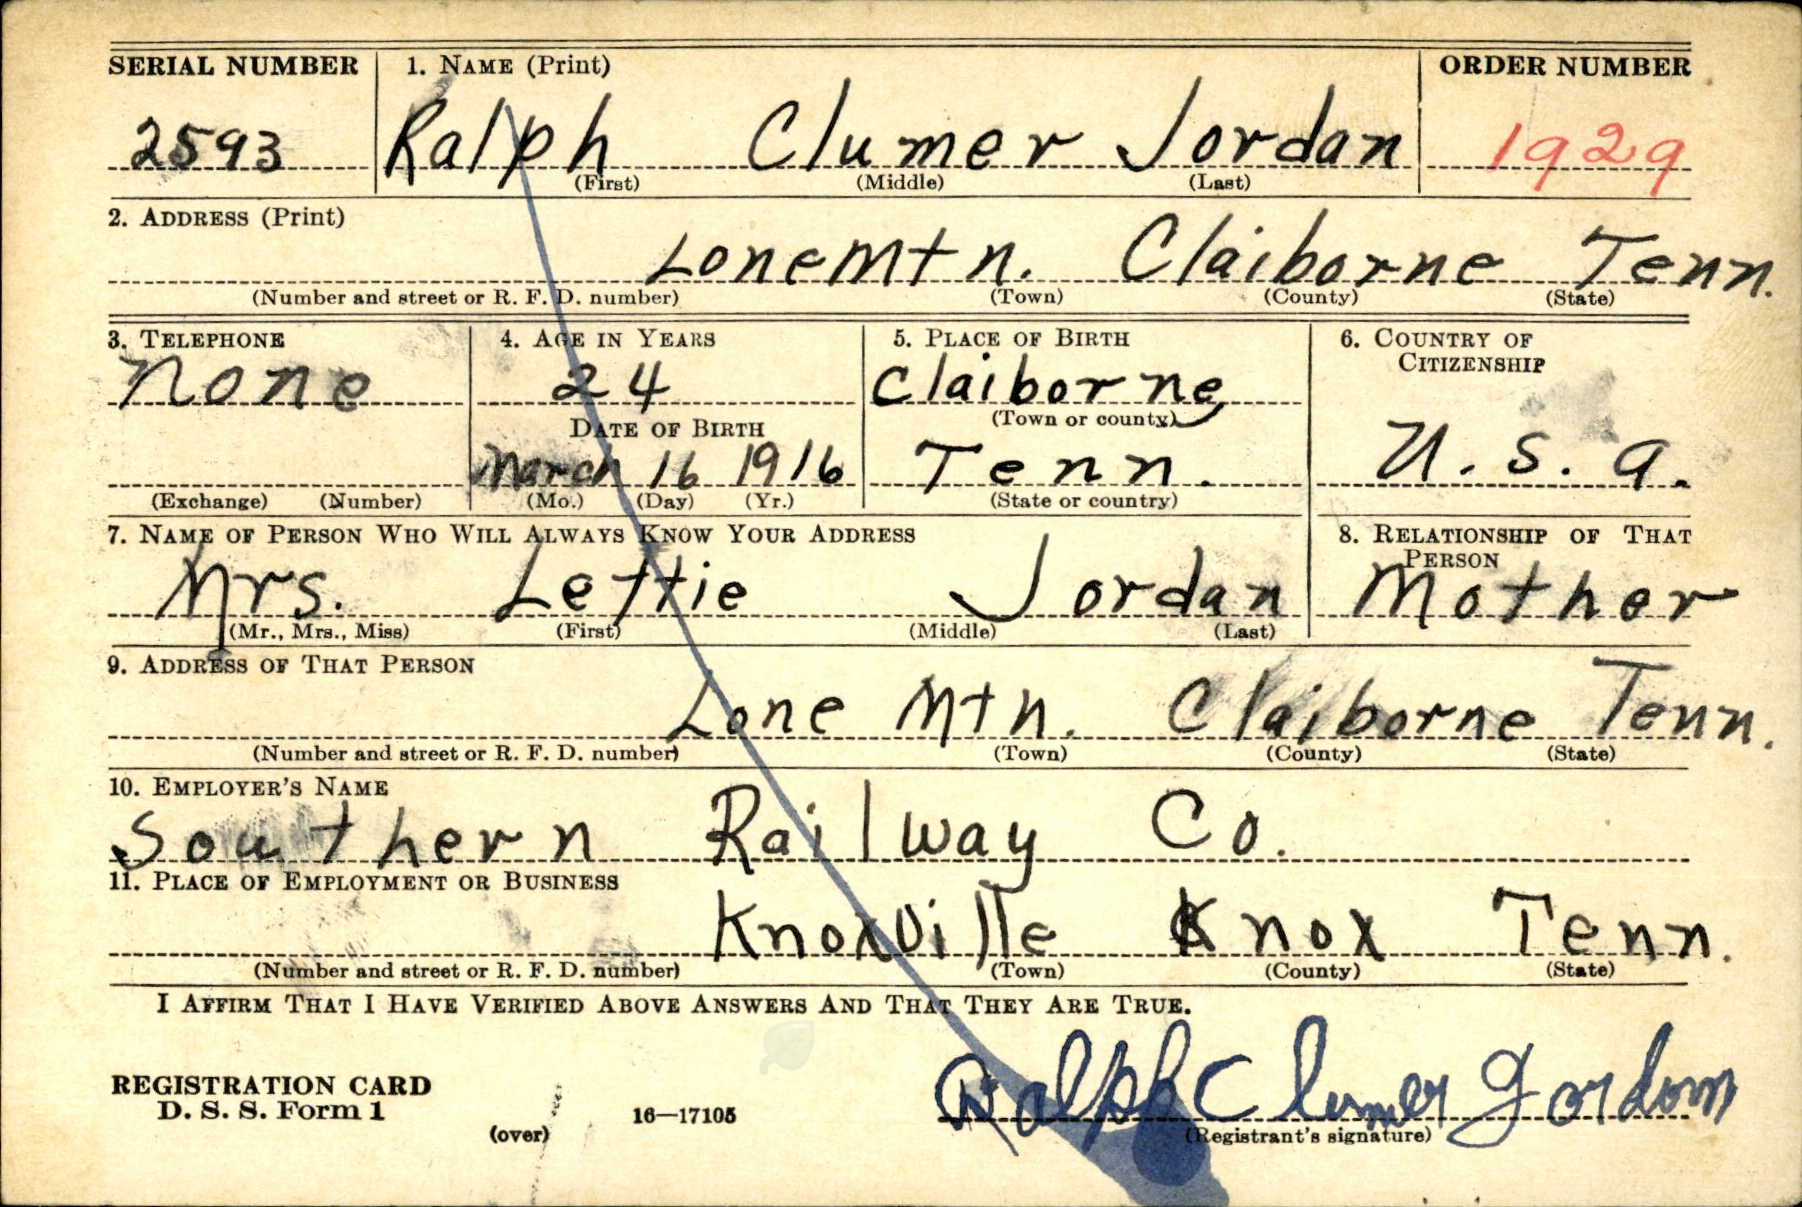 SERIAL NUMBER 1. NAME (Print) ORDER NUMBER
2593 Ralph Clumer Jordan 1929
(First) (Middle) (Last)
2. ADDRESS (Print)
Lone Mtn. Claiborne Tenn.
(Number and street or R. F. D. number) (Town) (County) (State)
3. TELEPHONE 4. AGE IN YEARS 5. PLACE OF BIRTH 6. COUNTRY OF
CITIZENSHIP
None 24 Claiborne
DATE OF BIRTH (Town or county)
March 16 1916 Tenn. U.S.a.
(Exchange) (Number) (Mo.) (Day) (Yr.) (State or country)
7. NAME OF PERSON WHO WILL ALWAYS KNOW YOUR ADDRESS 8. RELATIONSHIP OF THAT
PERSON
Mrs. Lettie Jordan Mother
(Mr., Mrs., Miss) (First) (Middle) (Last)
9. ADDRESS OF THAT PERSON
Lone Mtn. Claiborne Tenn.
(Number and street or R. F. D. number) (Town) (County) (State)
10. EMPLOYER'S NAME
Southern Railway Co.
11. PLACE OF EMPLOYMENT OR BUSINESS
Knoxville Knox Tenn.
(Number and street or R. F. D. number) (Town) (County) (State)
I AFFIRM THAT I HAVE VERIFIED ABOVE ANSWERS AND THAT THEY ARE TRUE.
REGISTRATION CARD
D. S. S. Form 1 16—17105 Ralph Clumer Jordan
(over) (Registrant's signature)